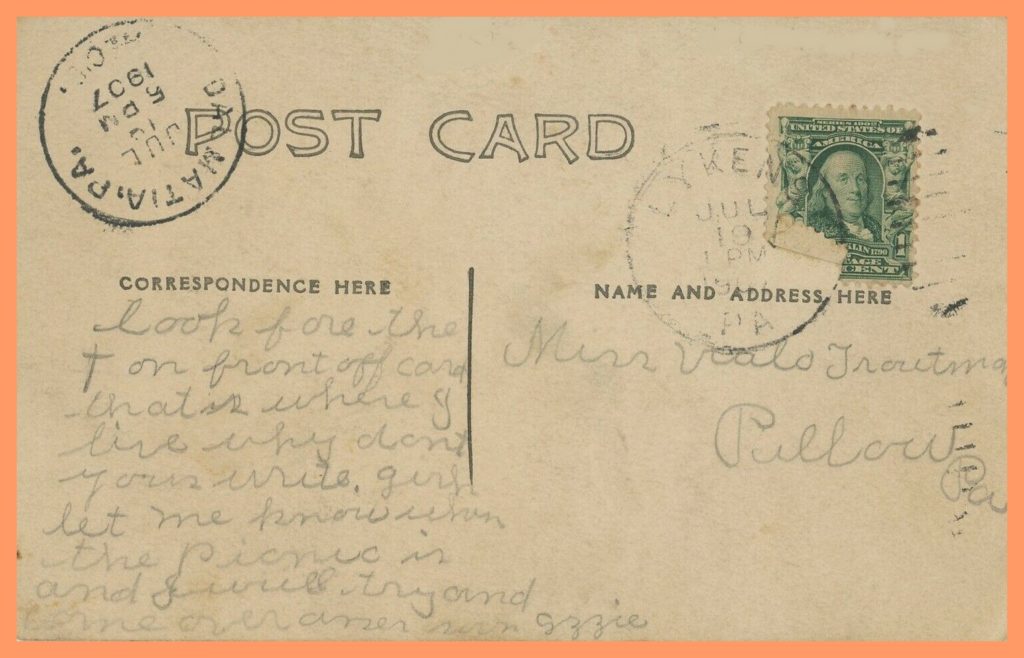 REC'D.
DALMATIA, PA.
JUL
5 PM
1907
POST CARD
SERIES 1902
UNITED STATES OF
AMERICA
LYKENS
JUL
19
1 PM
PA
CORRESPONDENCE HERE
NAME AND ADDRESS HERE
look fore the
† on front off card
that is where I
live why dont
yours write. girls
let me know when
the Picnic is
and I will try and
come over anser soon
Miss Troutma
Pillow
Pa